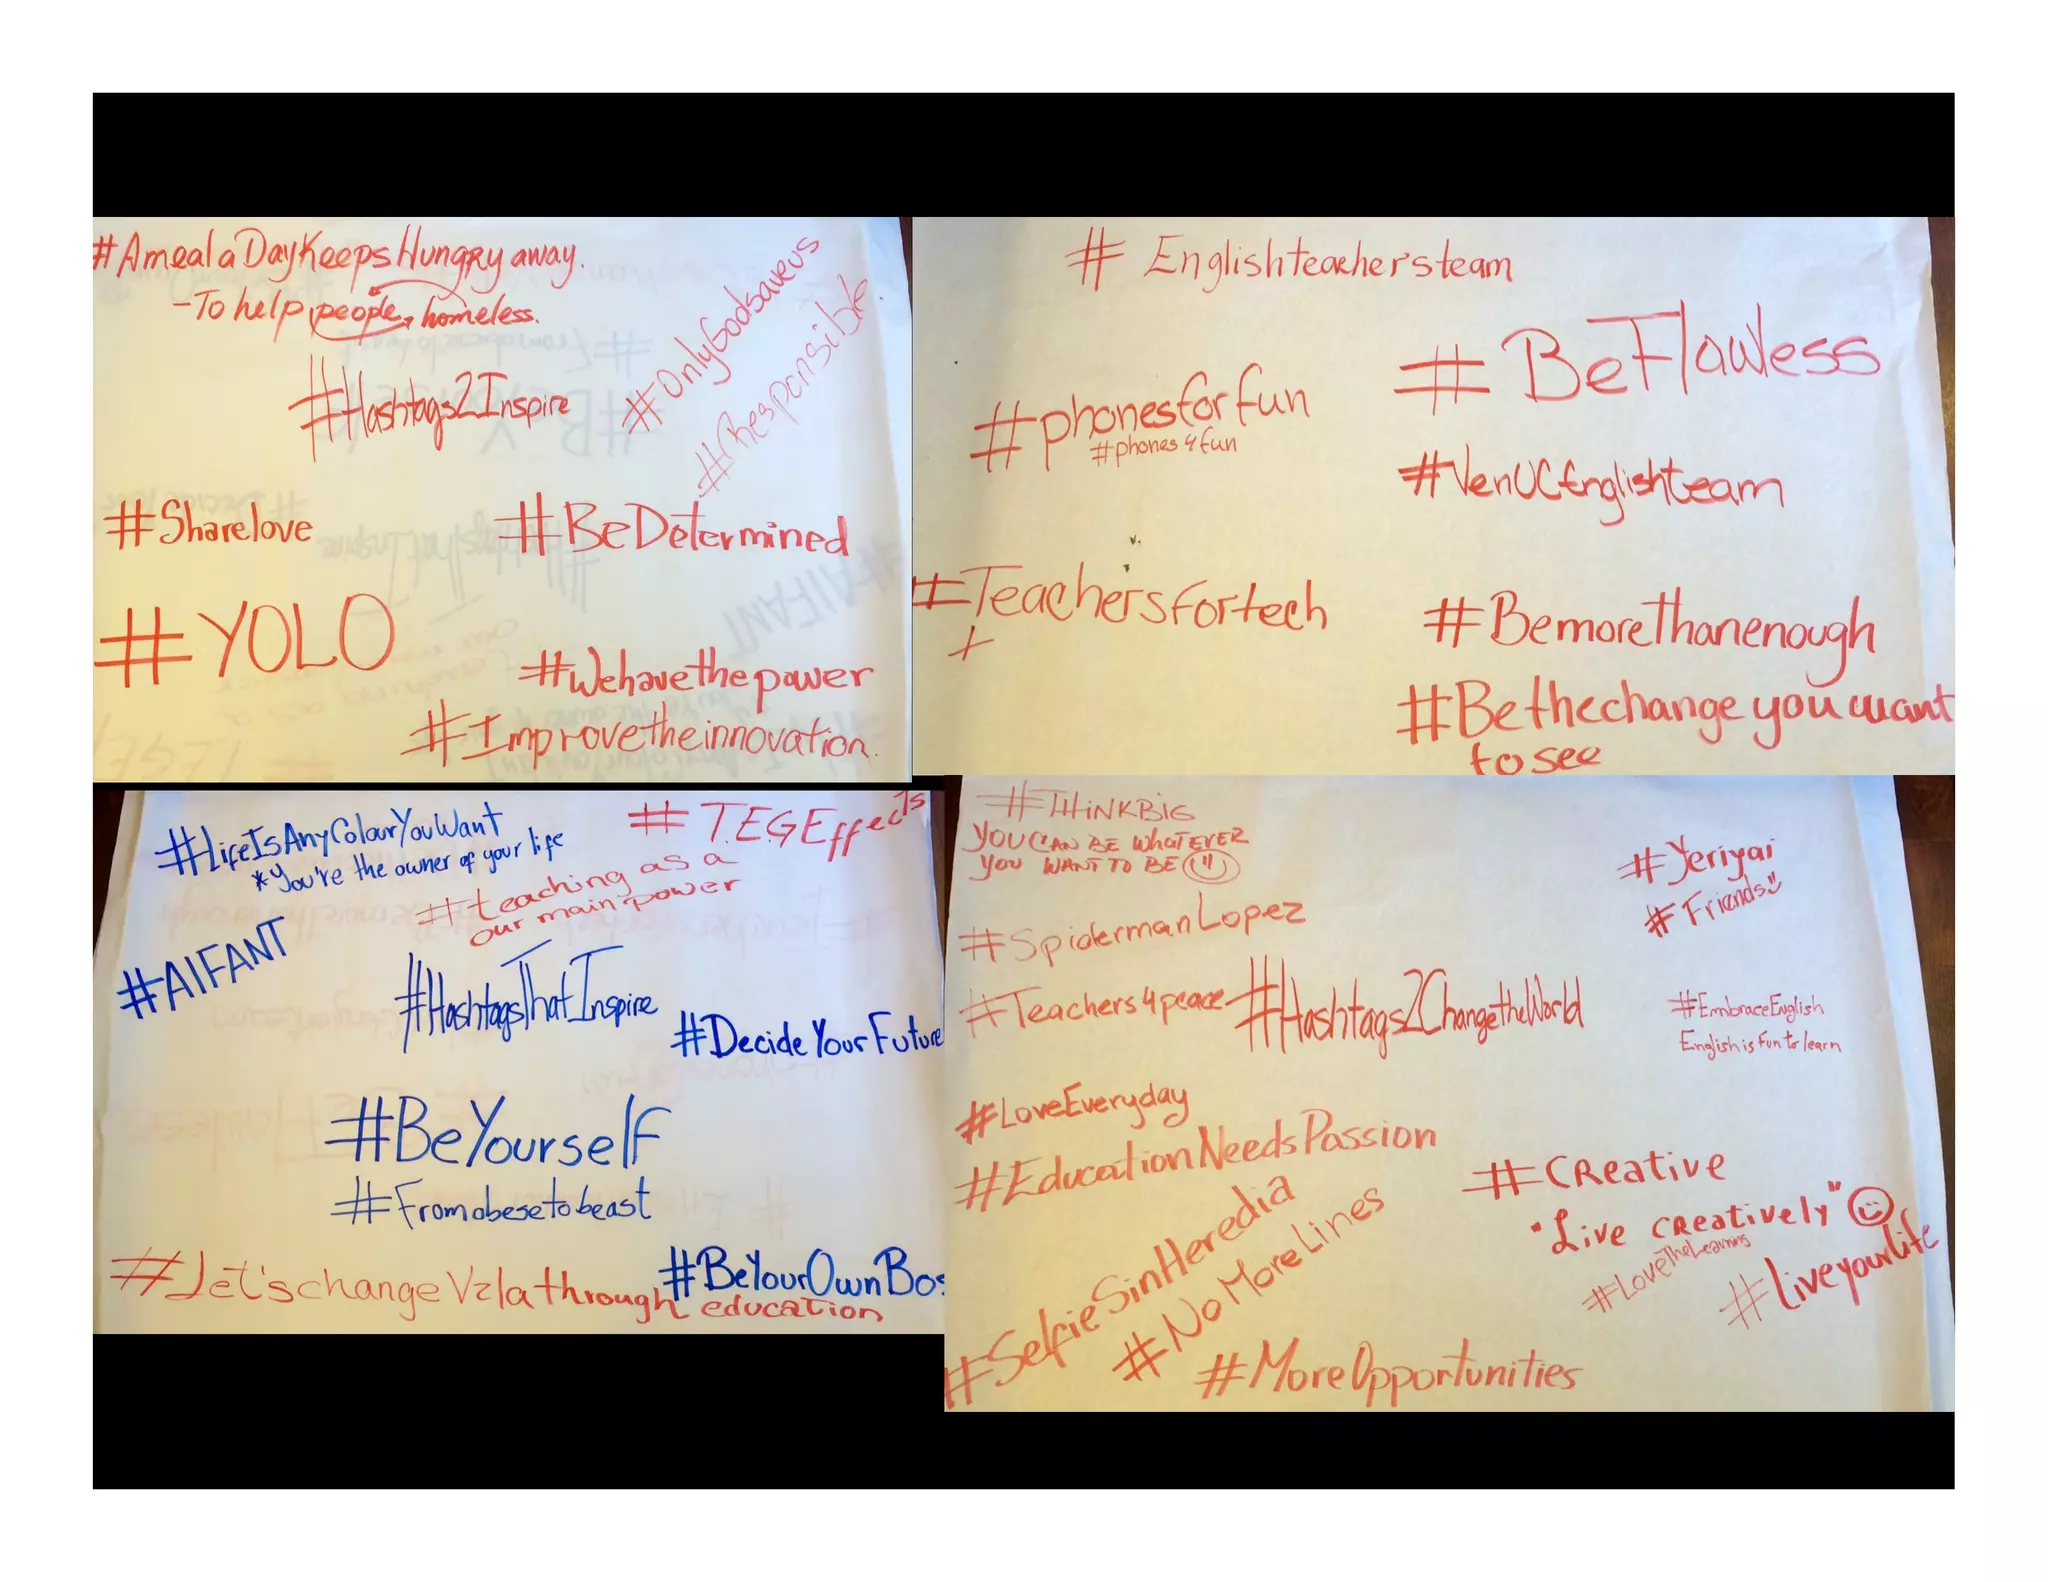 #AmealaDayKeepsHungryaway.
-To help people, homeless.
#OnlyGodsaveus
#Responsible.
#Hashtags2Inspire
#Sharelove
#BeDetermined
#YOLO
#Wehavethepower
#Improvetheinnovation.
# Englishteachersteam
#BeFlawless
#phonesforfun
#phones4fun
#VenUCEnglishteam
#Teachersfortech
#BemoreThanenough
#Bethechangeyouwant
to see
#LifeIsAnyColourYouWant
*You're the owner of your life
#T.E.G.Effects
#teaching as a
our main power
#AIFANT
#HashtagsThatInspire
#DecideYourFuture
#BeYourself
#Fromobesetobeast
#Let'schangeVzlathrough education
#BeYourOwnBos
#THiNKBiG
YOU CAN BE WHATEVER
YOU WANT TO BE
#Yeriyai
#Friends
#SpidermanLopez
#Teachers4peace
#Hashtags2ChangetheWorld
#EmbraceEnglish
English is fun to learn
#LoveEveryday
#EducationNeedsPassion
#CReative
"Live CReatively"
#SelfieSinHeredia
#NoMoreLines
#LoveTheLearning
#liveyourlife
#MoreOpportunities